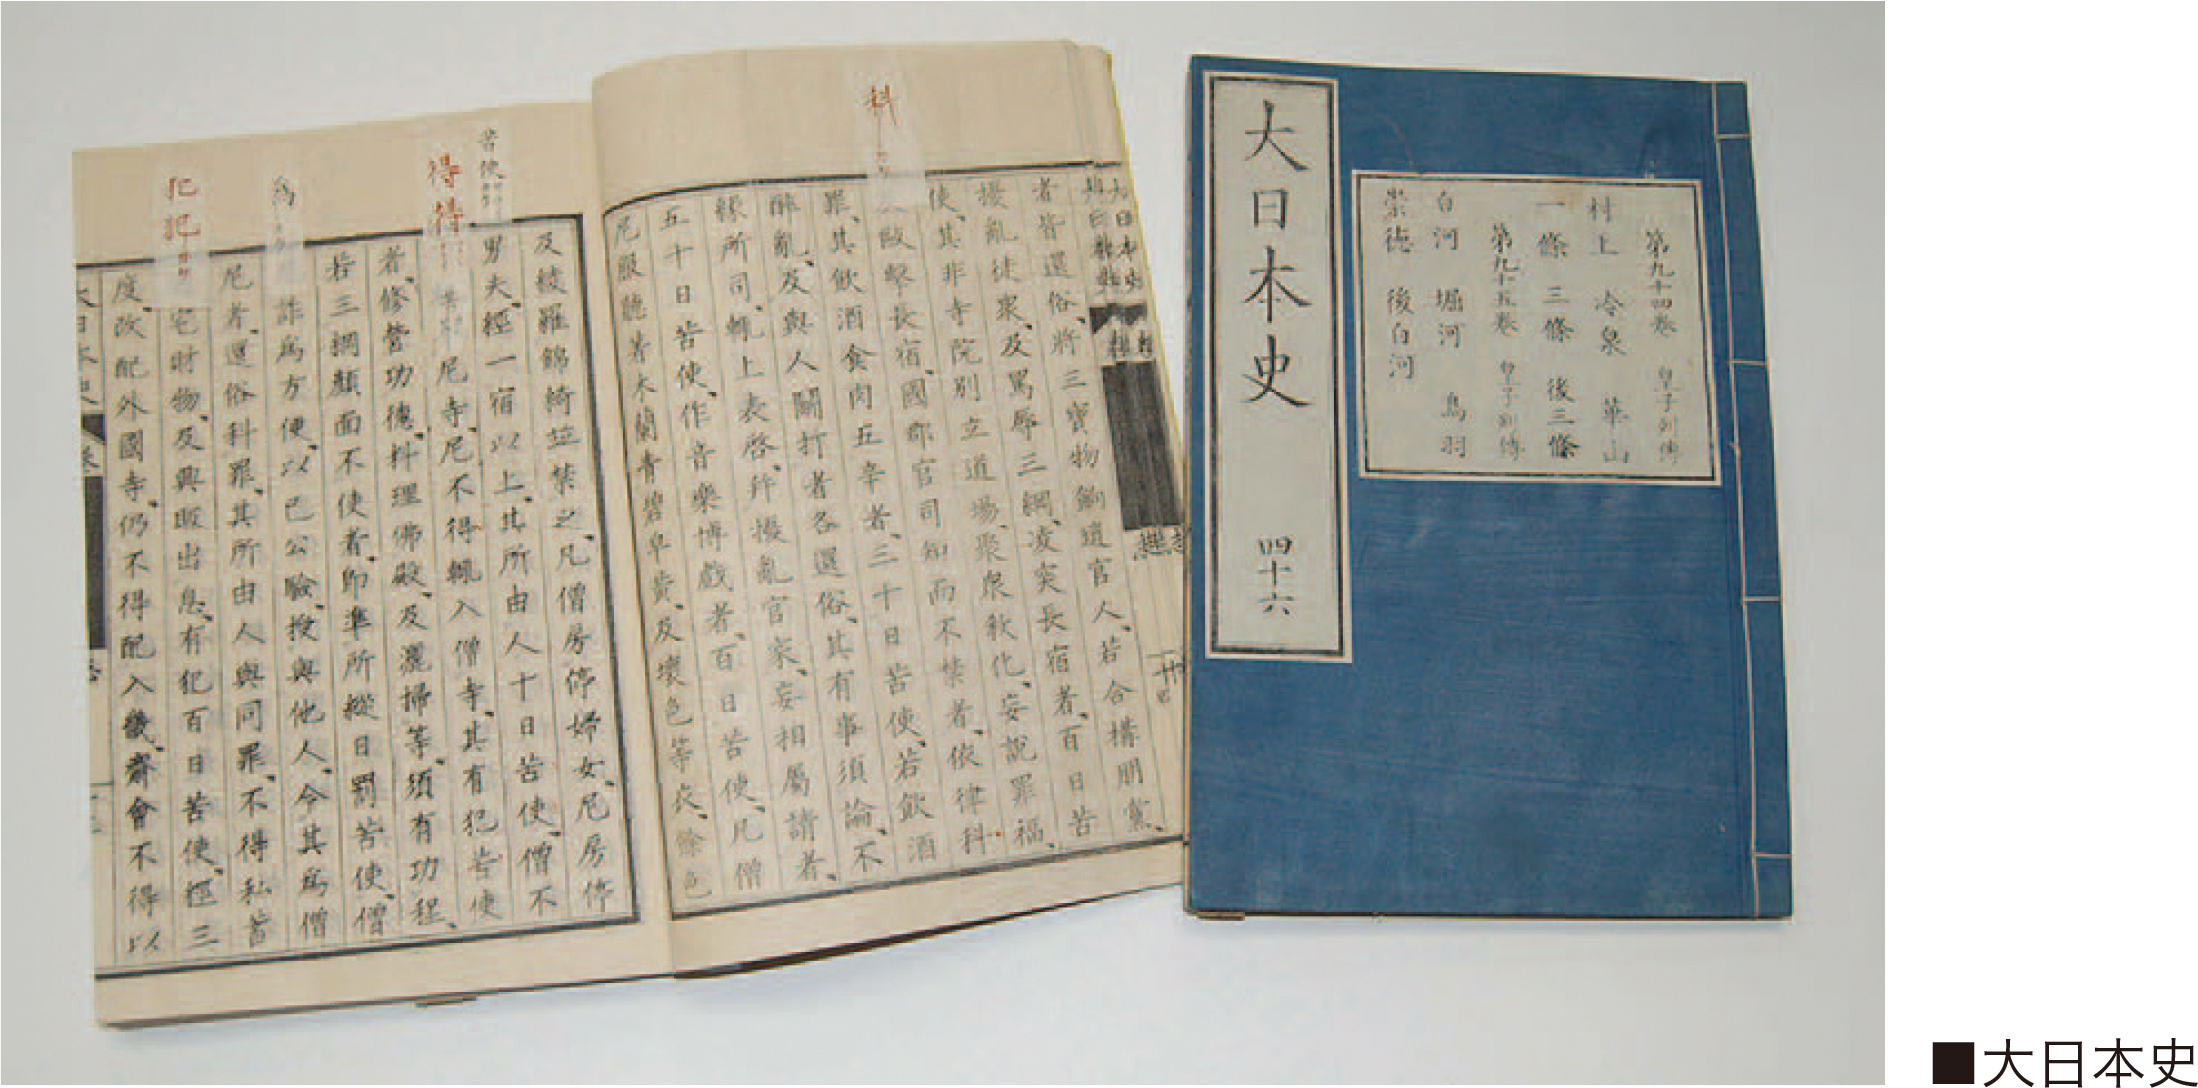 大日本史 四十六
第九十四卷 皇子列傳
村上 冷泉 華山
一條 三條 後三條
第九十五卷 皇子列傳
白河 堀河 鳥羽
崇德 後白河
科
者皆還俗、將三寶物餉遺官人、若合構朋黨、
擾亂徒衆、及罵辱三綱、凌突長宿者、百日苦
使、其非寺院別立道場、聚衆敎化、妄說罪福、
毆擊長宿、國郡官司知而不禁者、依律科
罪、其飲酒食肉五辛者、三十日苦使、若飲酒
醉亂、及與人鬪打者各還俗、其有事須論、不
緣所司、輒上表啓、幷擾亂官家、妄相屬請者、
五十日苦使、作音樂博戲者、百日苦使、凡僧
尼服聽著木蘭青碧皁黃、及壞色等衣、餘色
苦使
得得
爲
犯犯
及綾羅錦綺竝禁之、凡僧房停婦女、尼房停
男夫、經一宿以上、其所由人十日苦使、僧不
尼寺、尼不得輒入僧寺、其有犯苦使
者、修營功德、料理佛殿、及灑掃等、須有功程、
若三綱顏面不使者、卽準所縱日罰苦使、僧
詐爲方便、以己公驗、授與他人、令其爲僧
尼者、還俗科罪、其所由人與同罪、不得私畜
宅財物、及興販出息、有犯百日苦使、經三
度、改配外國寺、仍不得配入畿、齋會不得以
■大日本史